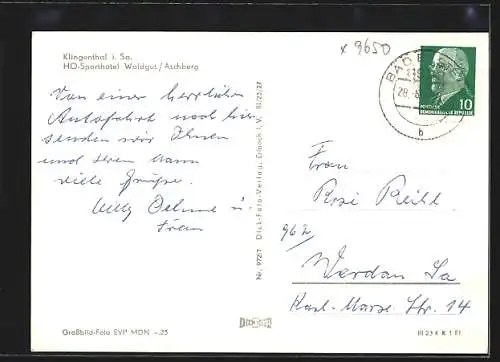 Klingenthal i. Sa.
HO-Sporthotel Waldgut/Aschberg
x 9650
BAD
28.
b
10
DEUTSCHE
DEMOKRATISCHE REPUBLIK
Von einer herrlichen
Autofahrt nach hier
senden wir Ihnen
und Ihrem Mann
viele Grüße.
Willy Oehme u.
Frau
Nr. 9727 Dick-Foto-Verlag, Erlbach i. V. III/23/27
Frau
Rosi Reihl
962
Werdau Sa
Karl-Marx-Str. 14
Großbild-Foto EVP MDN -,25
III 23 4 K 1